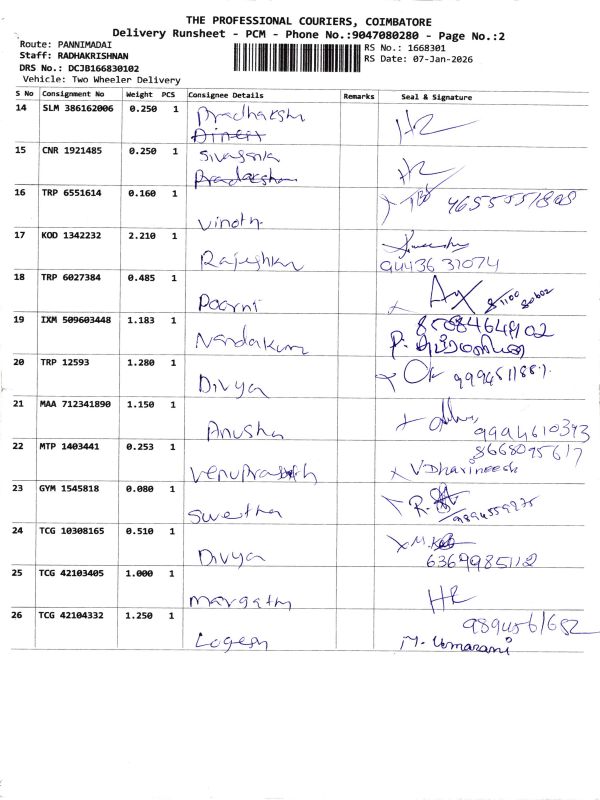 THE PROFESSIONAL COURIERS, COIMBATORE
Delivery Runsheet - PCM - Phone No.:9047080280 - Page No.:2
Route: PANNIMADAI
RS No.: 1668301
Staff: RADHAKRISHNAN
RS Date: 07-Jan-2026
DRS No.: DCJB166830102
Vehicle: Two Wheeler Delivery
S No Consignment No Weight PCS Consignee Details Remarks Seal & Signature
14 SLM 386162006 0.250 1 Pradhaksha
15 CNR 1921485 0.250 1
16 TRP 6551614 0.160 1 Vinoth
17 KOD 1342232 2.210 1 Rajeshkur
94436 31074
18 TRP 6027384 0.485 1 Poorni
19 IXM 509603448 1.183 1 Nandakum
20 TRP 12593 1.280 1 Divya
21 MAA 712341890 1.150 1 Anusha
9994610393
22 MTP 1403441 0.253 1 Venuprasath
8668095617
V Dharineesh
23 GYM 1545818 0.080 1 Swetha
9894559275
24 TCG 10308165 0.510 1 Divya
6369985112
25 TCG 42103405 1.000 1 Margathy
26 TCG 42104332 1.250 1 Logesh
9894561652
M. Umarani